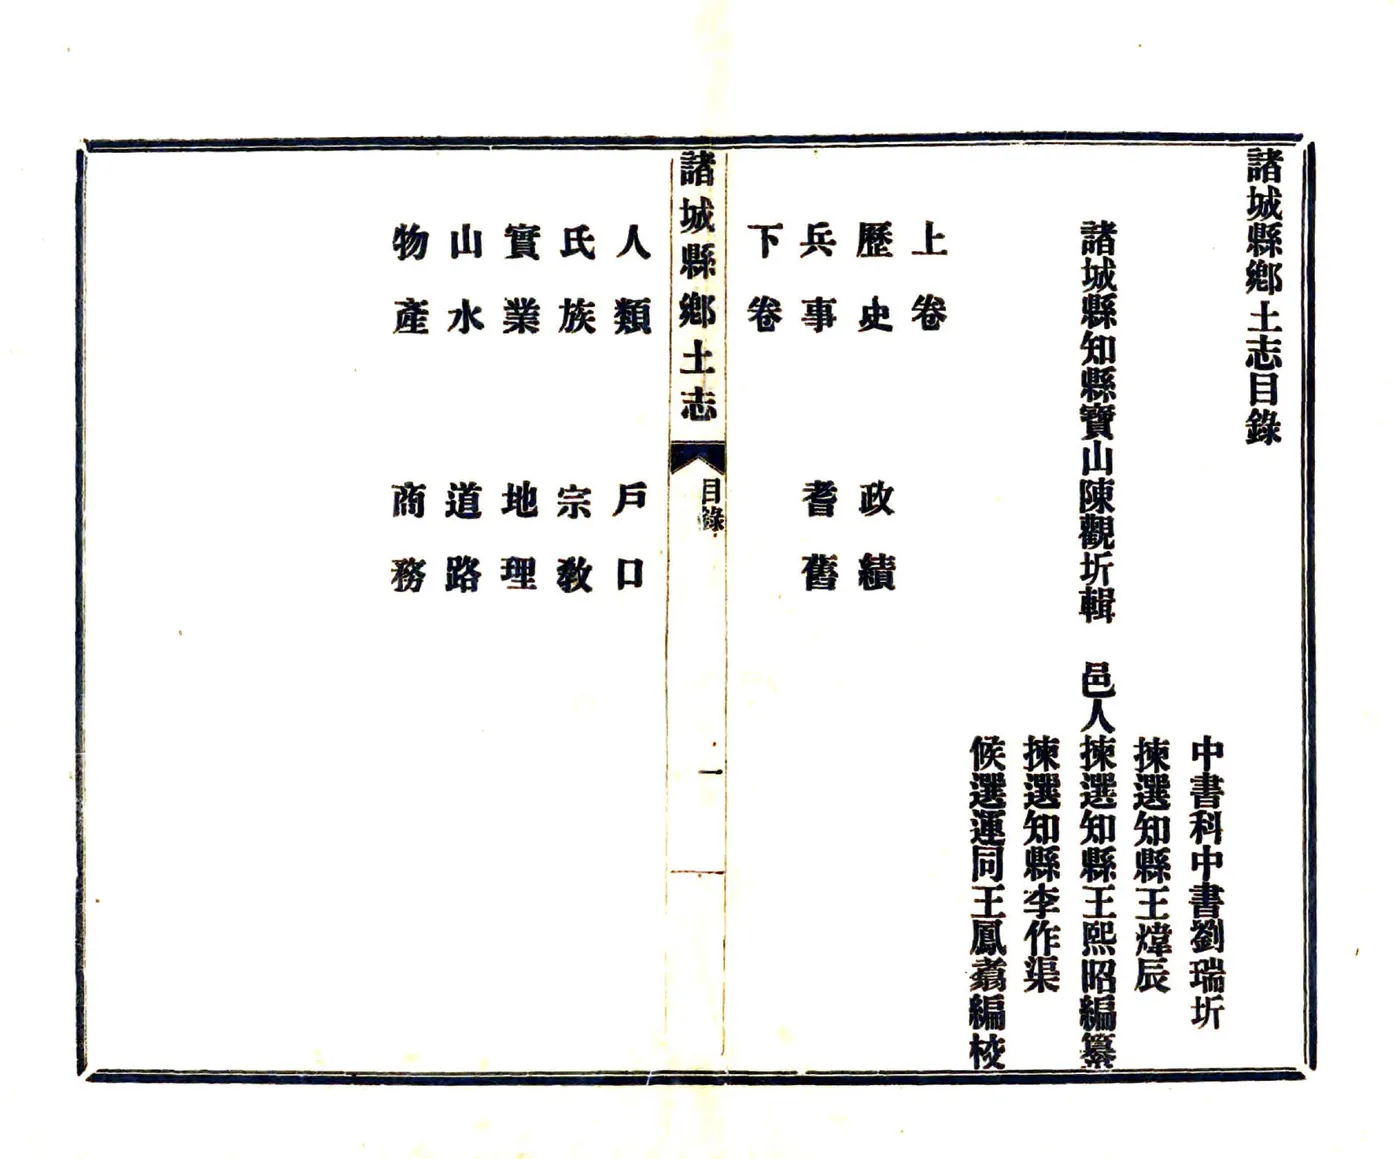 諸城縣鄉土志目錄
中書科中書劉瑞圻
揀選知縣王煒辰
諸城縣知縣寶山陳觀圻輯 邑人揀選知縣王熙昭編纂
揀選知縣李作渠
候選運同王鳳翥編校
上卷
歷史 政績
兵事 耆舊
下卷
諸城縣鄉土志 目錄 一
人類 戶口
氏族 宗教
實業 地理
山水 道路
物產 商務